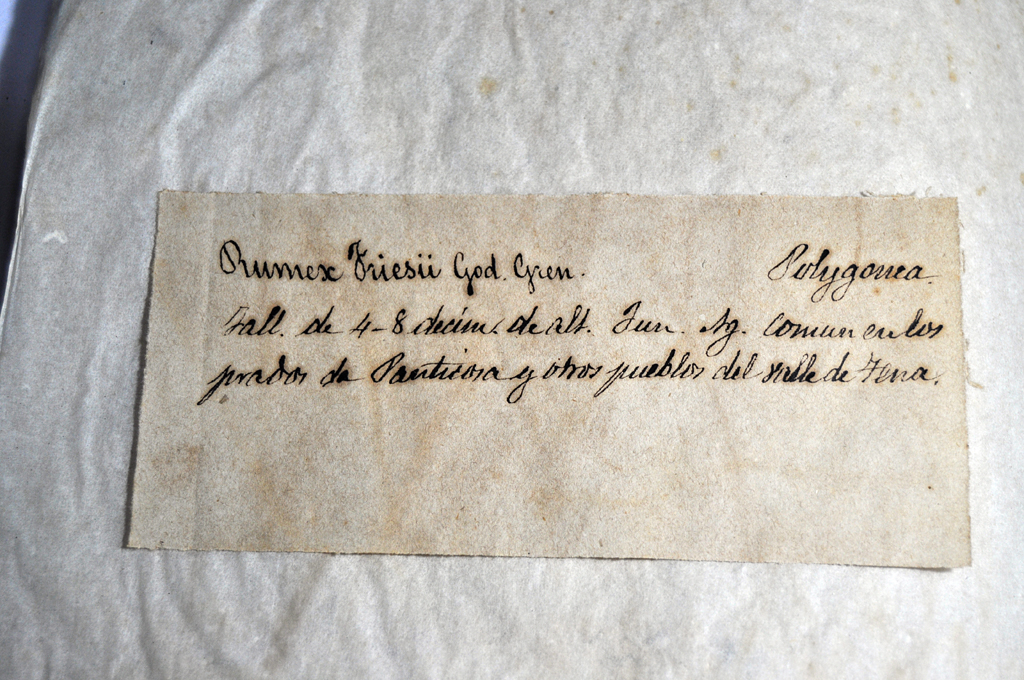 Rumex Friesii God. Gren. Polygonea.
Tall. de 4-8 decim. de alt. Jun. Ag. comun en los
prados de Panticosa y otros pueblos del valle de Tena.